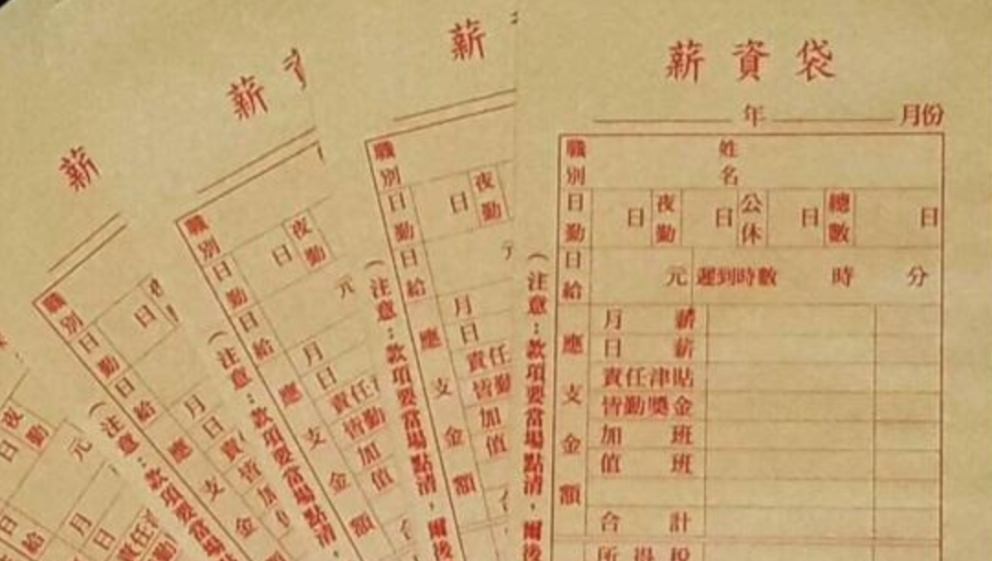 薪資袋
年 月份
職別 姓名
日勤 日 夜勤 日 公休 日 總數 日
日給 元 遲到時數 時 分
應支金額
月薪
日薪
責任津貼
皆勤獎金
加班
值班
合計
所得稅
(注意:款項要當場點清,爾後
薪資
職別
日勤 日 夜勤
日給 元
應支金額
月
日
責任
皆勤
加
值
合
(注意:款項要當場點清,爾後
薪資
職別
日勤 日 夜勤
日給 元
應支金額
月
日
責任
皆勤
加
值
合
(注意:款項要當場點清,
薪
職別
日勤 日
日給
應支金
月
日
責
皆
加
(注意:款項要當場點
夜勤
日
元
日給
月
日
責任
皆勤